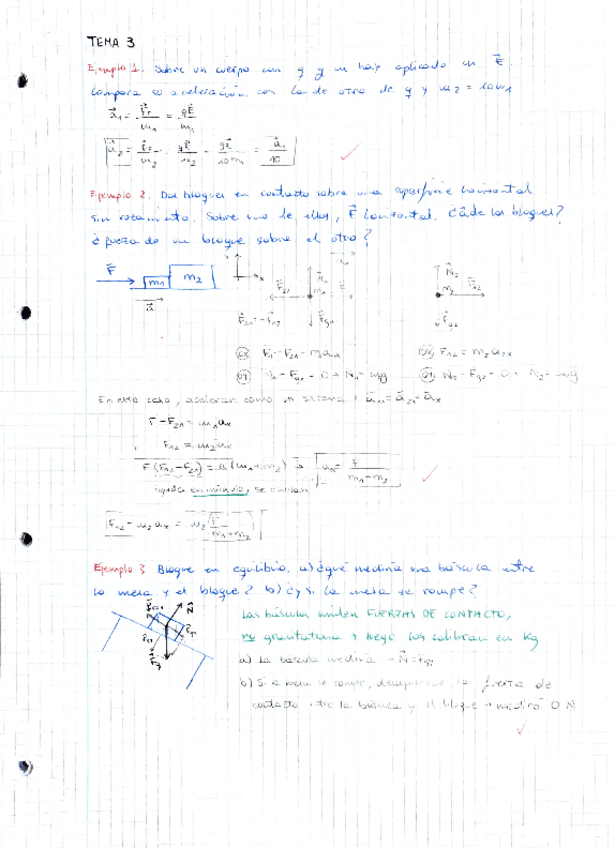 TEMA 3
Ejemplo 1. Sobre un cuerpo con q y m hay aplicado un E.
Compara su aceleración con la de otro de q y m2 = 10m1
a1 = Fr/m1 = qE/m1
a2 = Fr/m2 = qE/m2 = qE/10m1 = a1/10
Ejemplo 2. Dos bloques en contacto sobre una superficie horizontal
sin rozamiento. Sobre uno de ellos, F horizontal. ¿a de los bloques?
¿fuerza de un bloque sobre el otro?
F m1 m2 a
F21 = -F12 Fg1
N2 m2 F12 Fg2
F - F21 = m1a1x F12 = m2a2x
N1 - Fg1 = 0 → N1 = m1g N2 - Fg2 = 0 → N2 = m2g
En este caso, aceleran como un sistema → a1x = a2x = ax
F - F21 = m1ax
F12 = m2ax
F + (F12 - F21) = a(m1 + m2) → ax = F/m1+m2
se anulan
F12 = m2ax = m2 F/m1+m2
Ejemplo 3 Bloque en equilibrio. a) ¿qué mediría una báscula entre
la mesa y el bloque? b) ¿y si la mesa se rompe?
Las básculas miden FUERZAS DE CONTACTO,
no gravitatoria → luego las calibran en Kg
a) La báscula mediría
b) Si la mesa se rompe, desaparece la fuerza de
contacto entre la báscula y el bloque → mediría 0 N